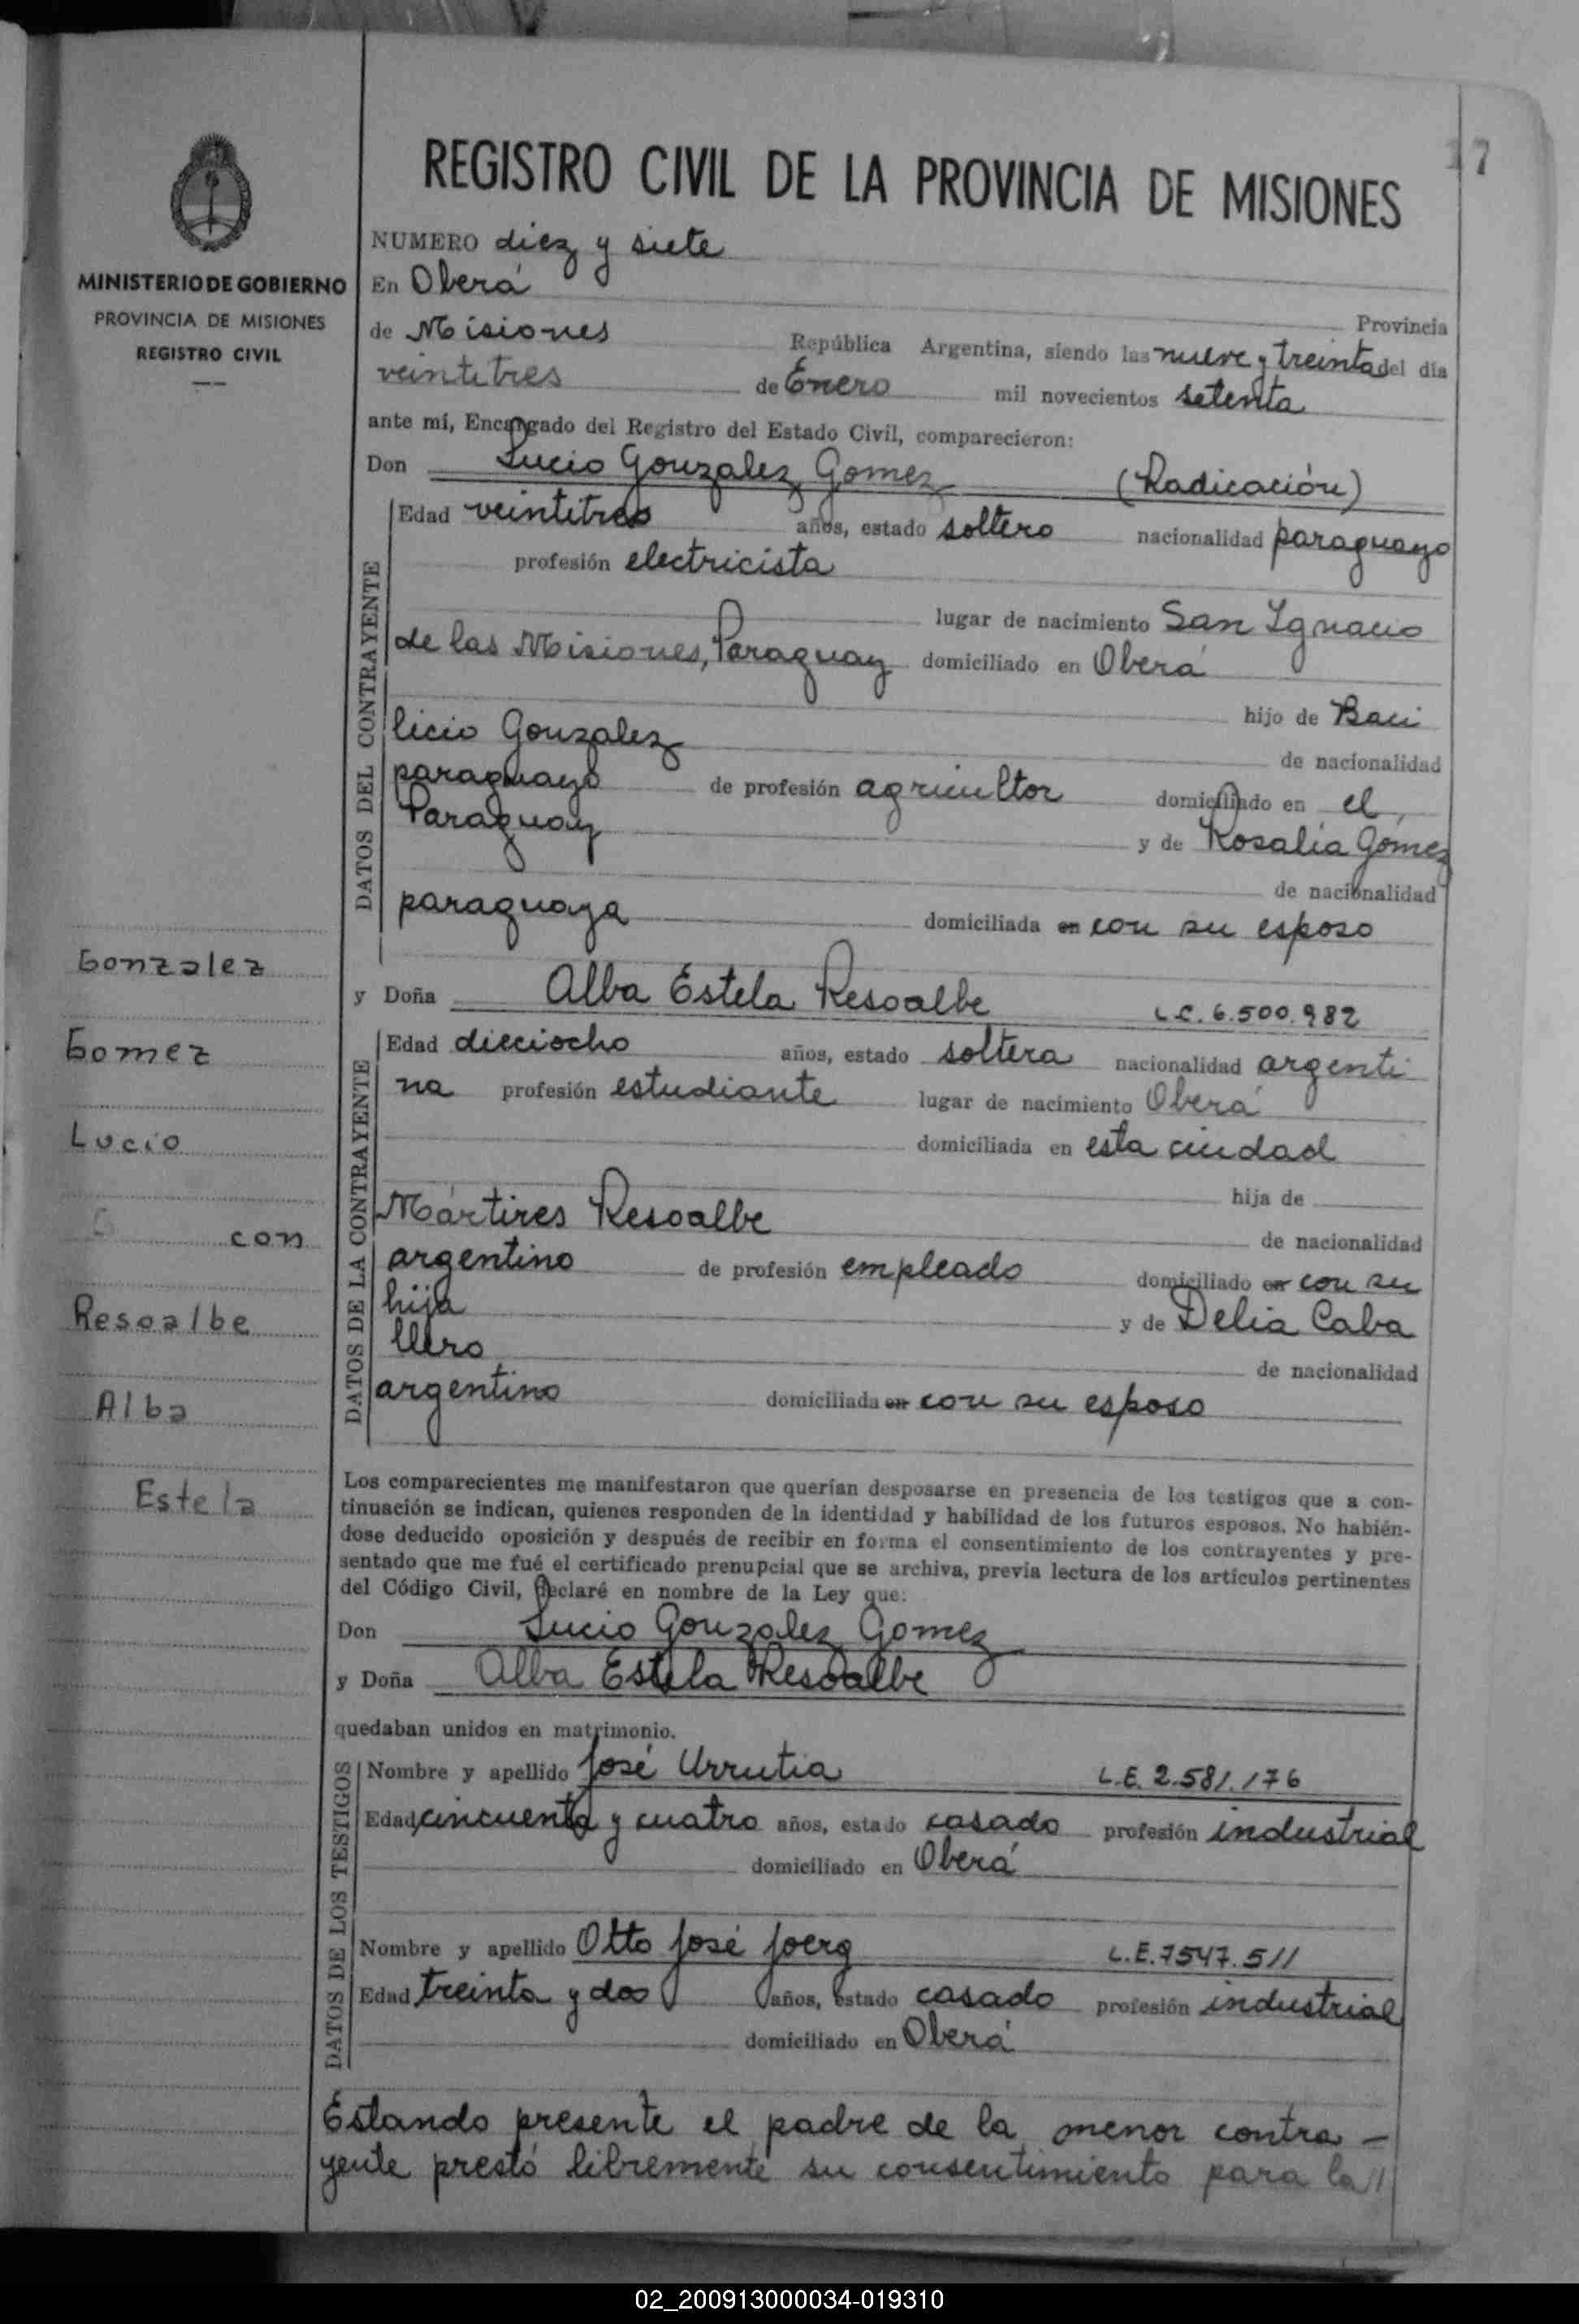 17
REGISTRO CIVIL DE LA PROVINCIA DE MISIONES
MINISTERIO DE GOBIERNO
PROVINCIA DE MISIONES
REGISTRO CIVIL
NUMERO diez y siete
En Oberá
Provincia
de Misiones República Argentina, siendo las nueve y treinta del día
veintitres de Enero mil novecientos setenta
ante mí, Encargado del Registro del Estado Civil, comparecieron:
Don Lucio Gonzalez Gomez (Radicación)
DATOS DEL CONTRAYENTE
Edad veintitres años, estado soltero nacionalidad paraguayo
profesión electricista
lugar de nacimiento San Ignacio
de las Misiones, Paraguay domiciliado en Oberá
hijo de Baci
licio Gonzalez
de nacionalidad
paraguayo de profesión agricultor domiciliado en el
Paraguay y de Rosalía Gómez
de nacionalidad
paraguaya domiciliada en con su esposo
y Doña Alba Estela Resoalbe L.C. 6.500.982
DATOS DE LA CONTRAYENTE
Edad dieciocho años, estado soltera nacionalidad argenti
na profesión estudiante lugar de nacimiento Oberá
domiciliada en esta ciudad
hija de
Mártires Resoalbe
de nacionalidad
argentino de profesión empleado domiciliado en con su
hija y de Delia Caba
llero
de nacionalidad
argentino domiciliada en con su esposo
Gonzalez
Gomez
Lucio
G con
Resoalbe
Alba
Estela
Los comparecientes me manifestaron que querían desposarse en presencia de los testigos que a con-
tinuación se indican, quienes responden de la identidad y habilidad de los futuros esposos. No habién-
dose deducido oposición y después de recibir en forma el consentimiento de los contrayentes y pre-
sentado que me fué el certificado prenupcial que se archiva, previa lectura de los artículos pertinentes
del Código Civil, declaré en nombre de la Ley que:
Don Lucio Gonzalez Gomez
y Doña Alba Estela Resoalbe
quedaban unidos en matrimonio.
DATOS DE LOS TESTIGOS
Nombre y apellido José Urrutia L.E. 2.581.176
Edad cincuenta y cuatro años, estado casado profesión industrial
domiciliado en Oberá
Nombre y apellido Otto José Joerg L.E. 7547.511
Edad treinta y dos años, estado casado profesión industrial
domiciliado en Oberá
Estando presente el padre de la menor contra-
yente prestó libremente su consentimiento para la//
02_200913000034-019310